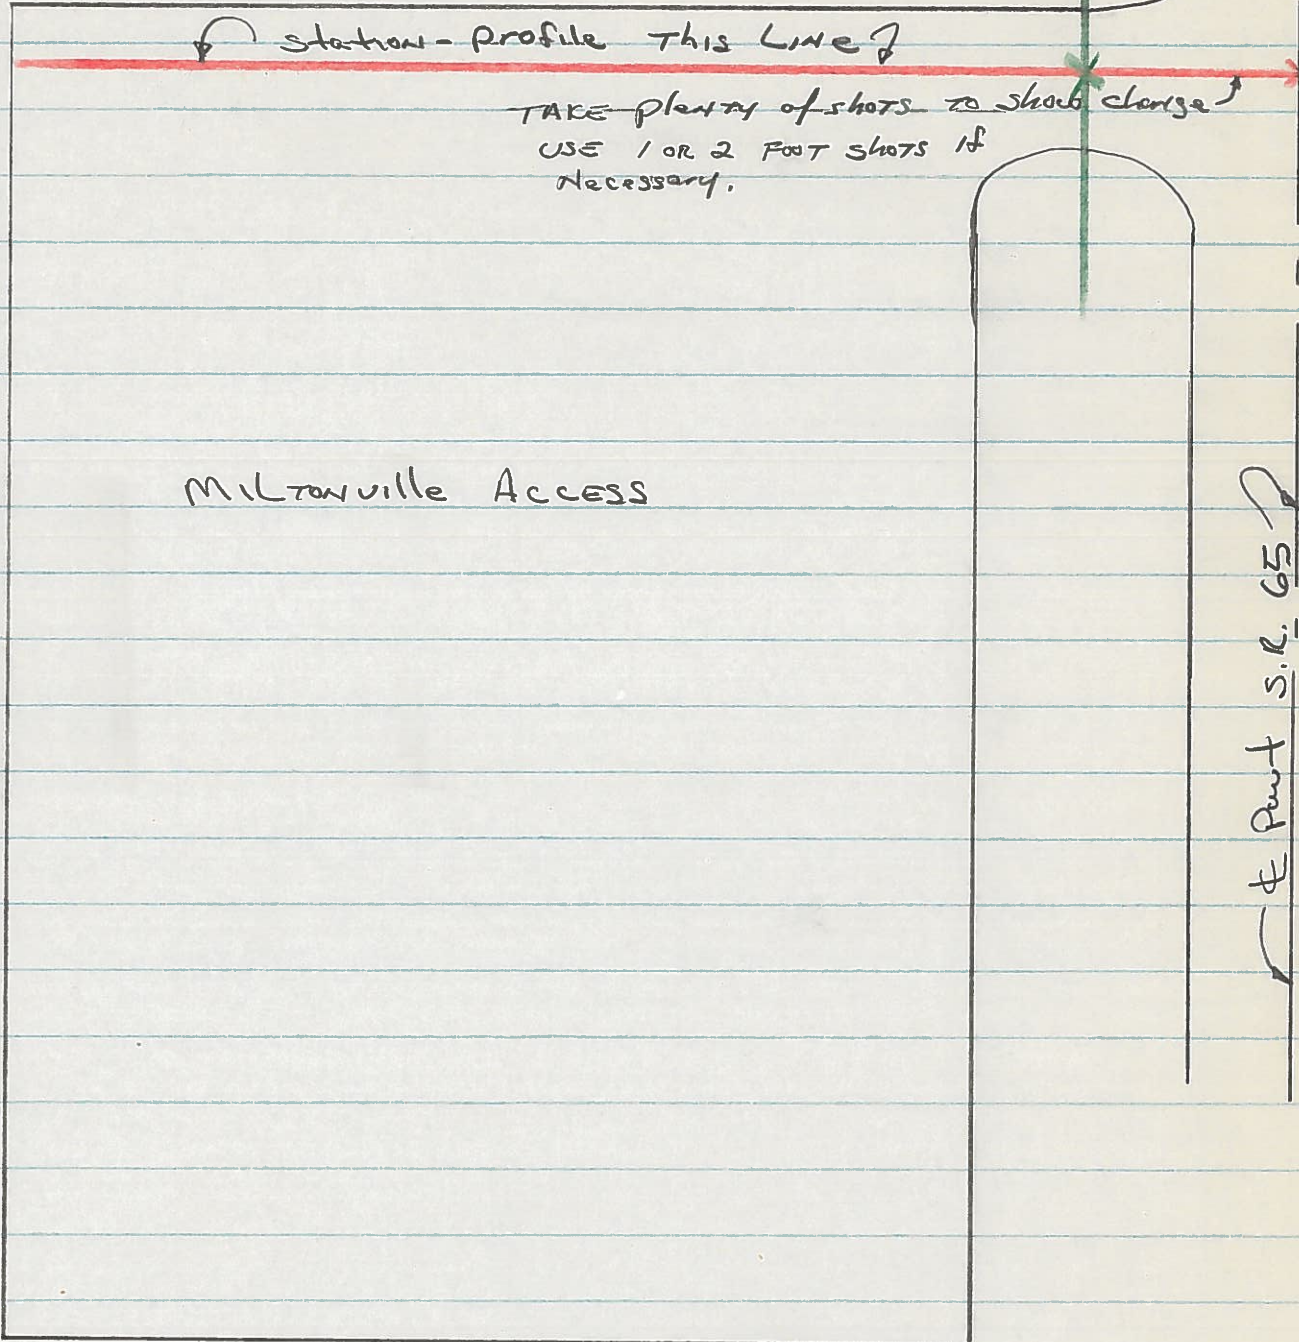 station-Profile This Line
TAKE plenty of shots to show change
USE 1 OR 2 FOOT shots if
Necessary.
MILTONville ACCESS
℄ Pvmt S.R. 65